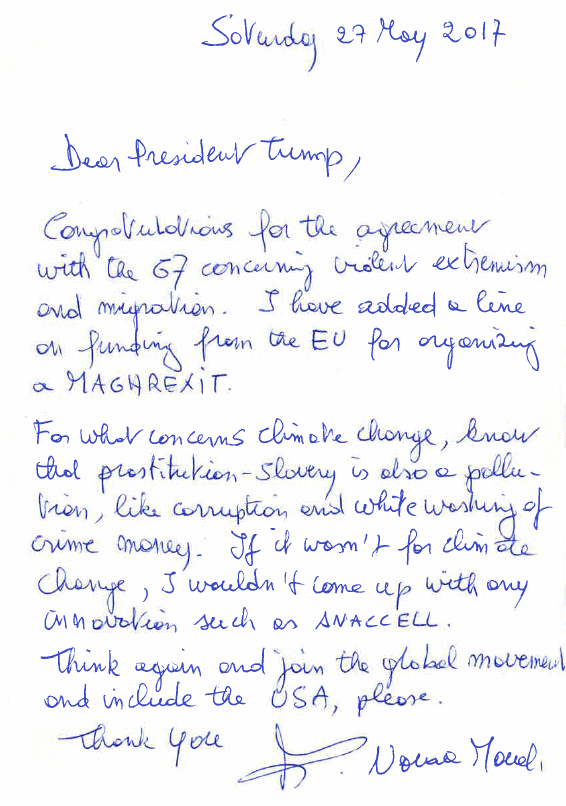 Saturday 27 May 2017
Dear President Trump,
Congratulations for the agreement
with the G7 concerning violent extremism
and migration. I have added a line
on funding from the EU for organizing
a MAGHREXIT.
For what concerns climate change, know
that prostitution-slavery is also a pollu-
tion, like corruption and white washing of
crime money. If it wasn't for climate
change, I wouldn't come up with any
innovation such as ANACCELL.
Think again and join the global movement
and include the USA, please.
Thank you